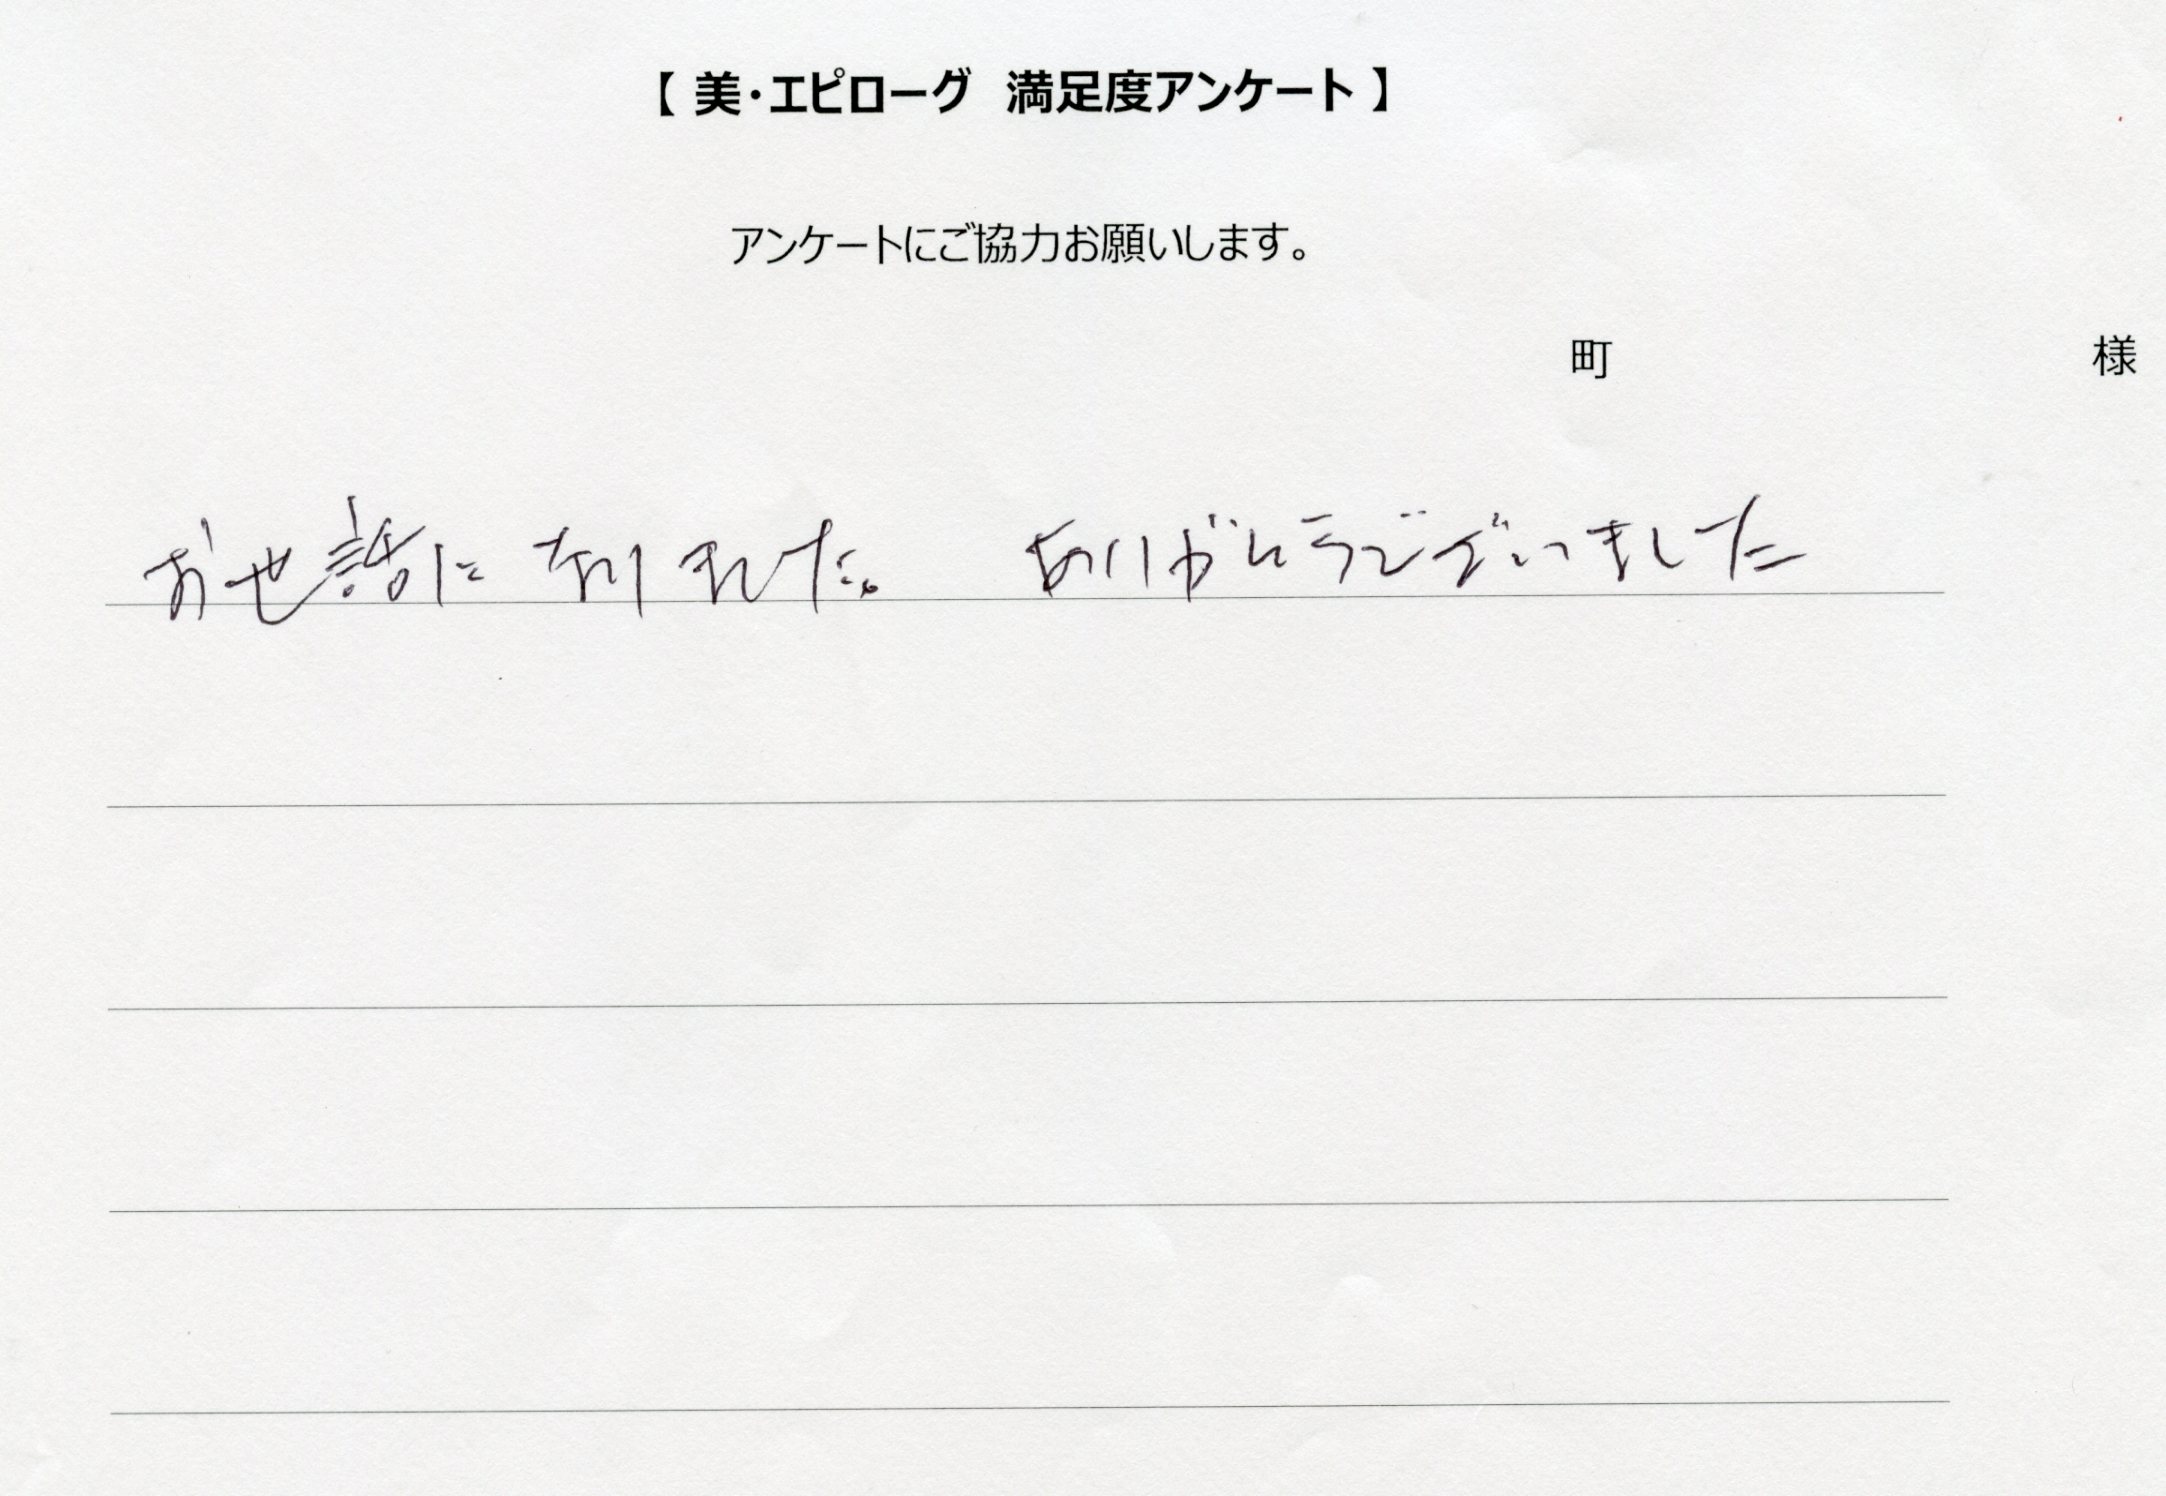 【 美・エピローグ　満足度アンケート 】
アンケートにご協力お願いします。
町　様
お世話になりました。　ありがとうございました